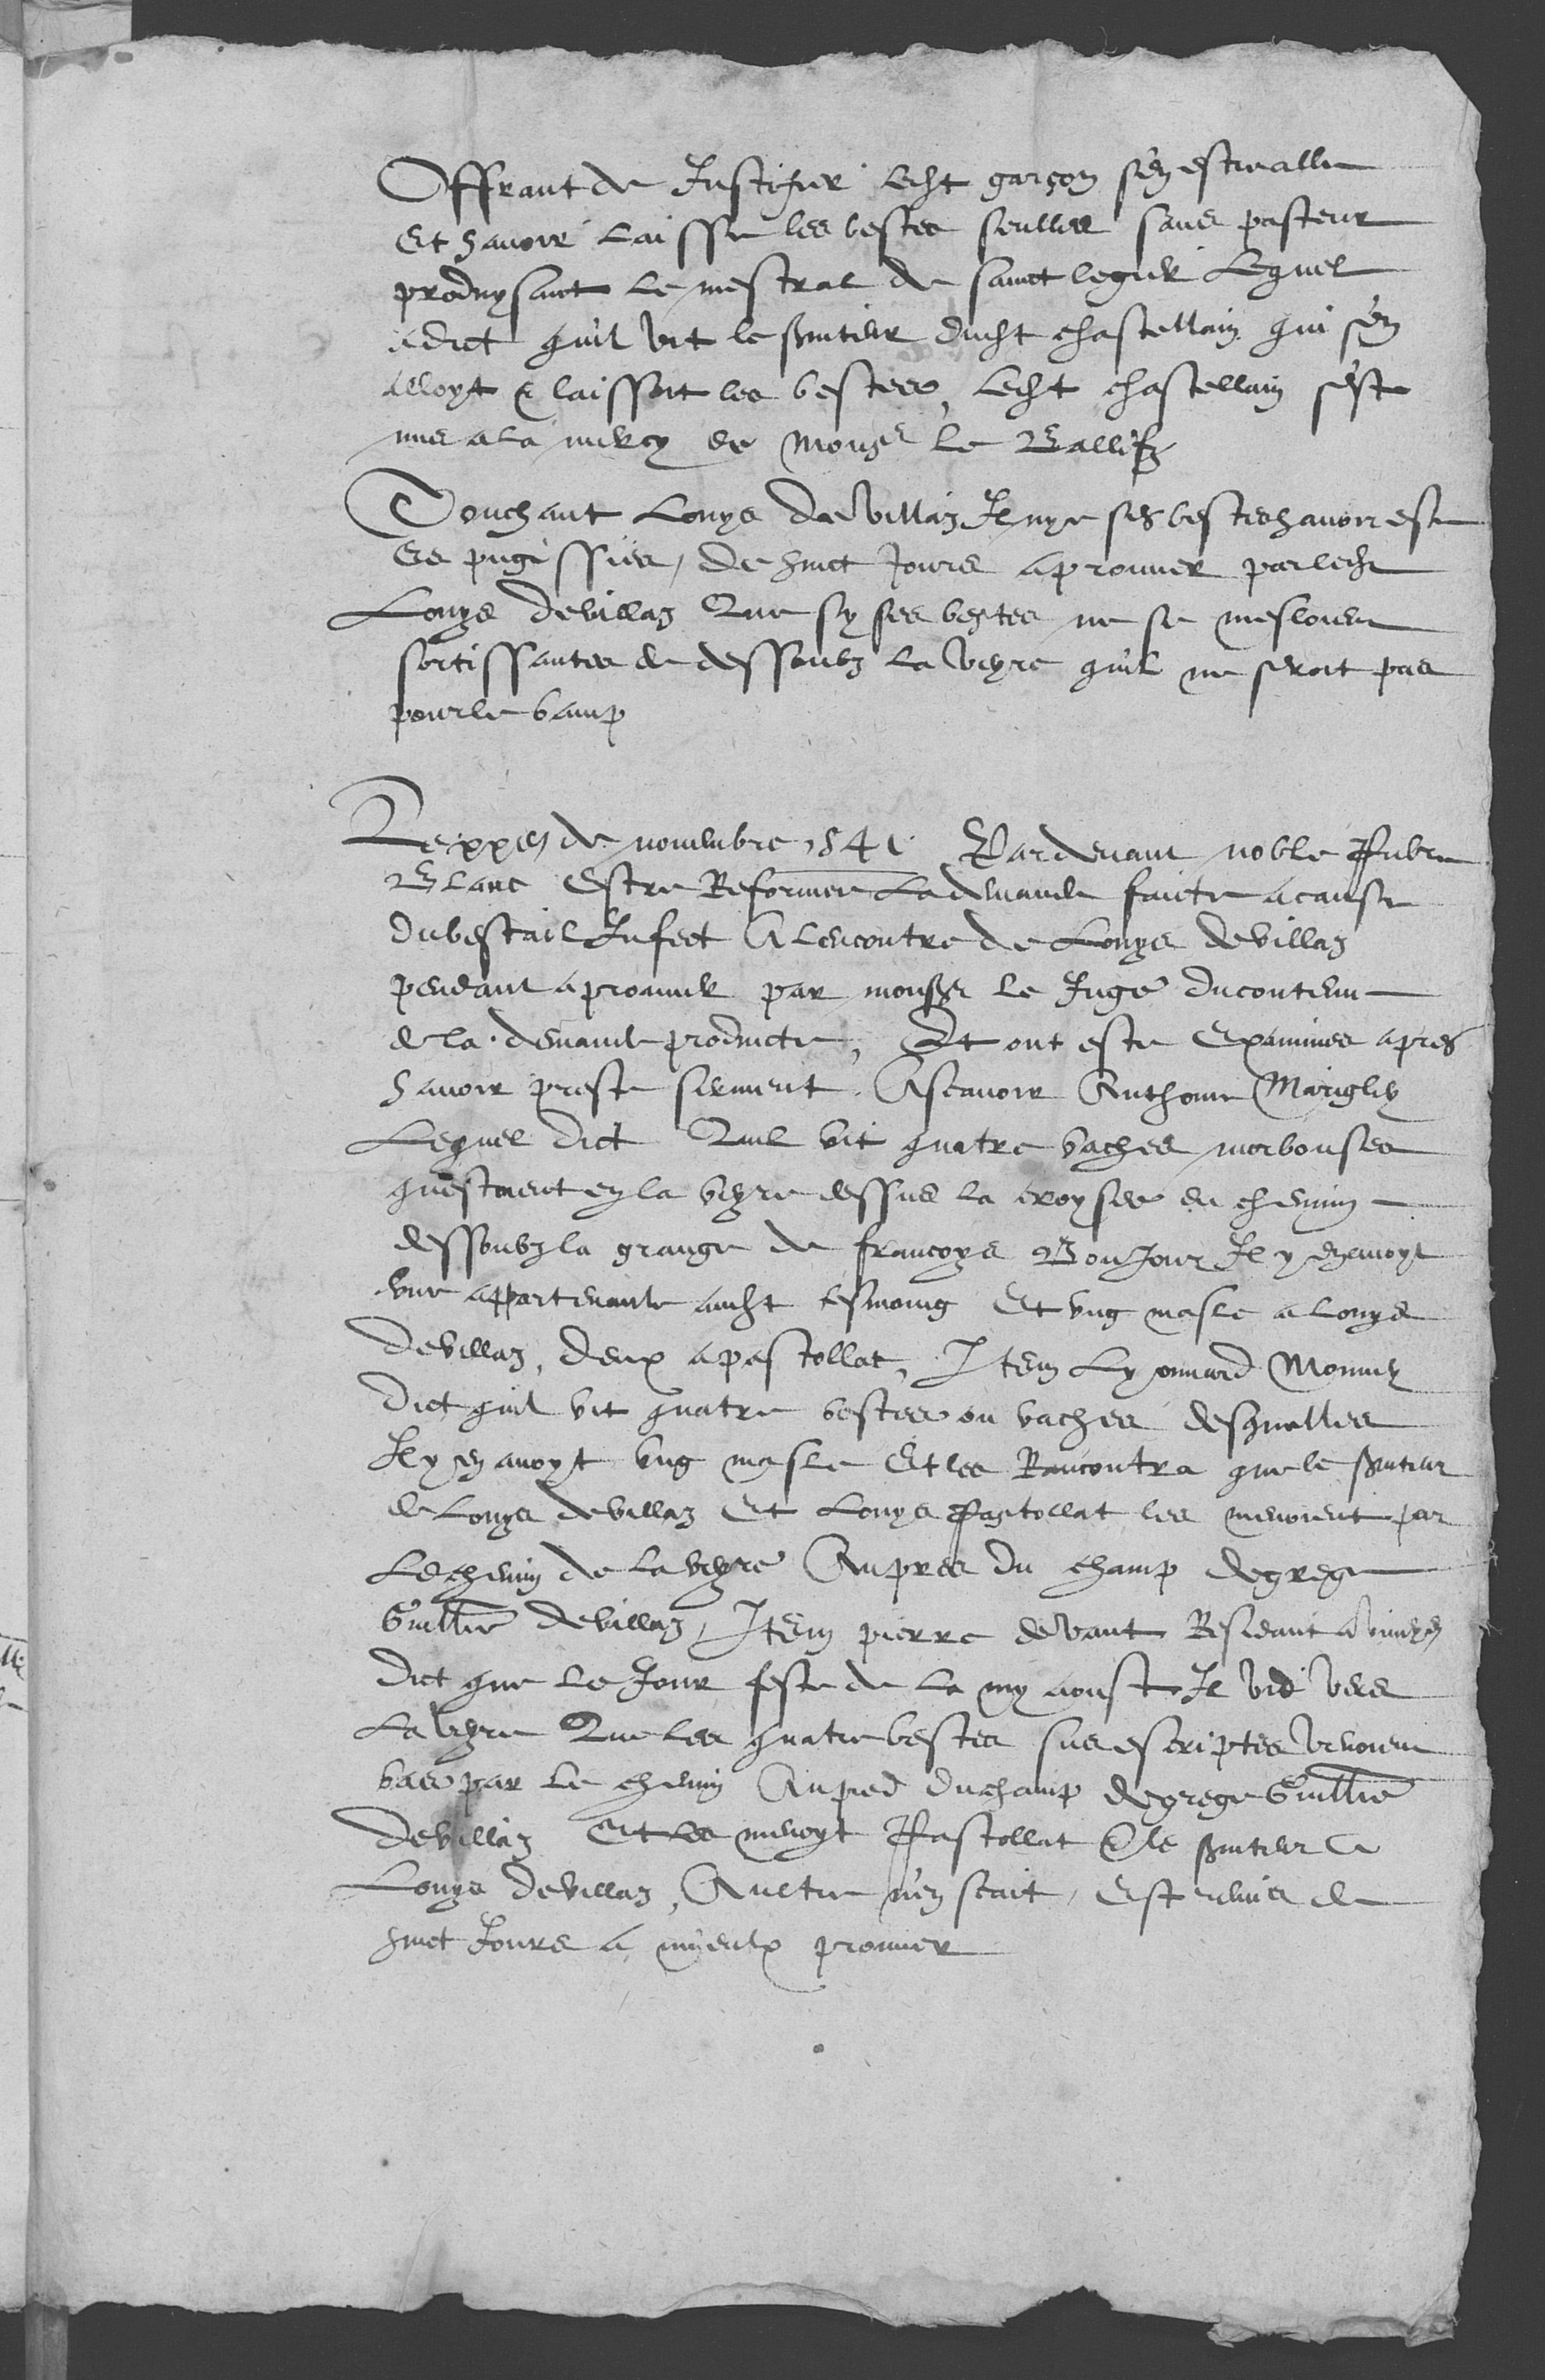 Offrant de Justifier ledit garçon s'en estre alle
Et havoir laisse les bestes seulles sans pasteur
produysant le mestral de sainct legier Lequel
a dict qu'il vit le serviteur dudit chastellain qui s'en
alloyt & laissoit les bestes, ledit chastellain s'est
mis a la mercy de Monsr le Ballifz
Touchant Louys de Villaz Il nye ses bestes havoir este
Es pugessies, de huict Jours a prouver par ledit
Louys de villaz Que sy ses bestes ne se mesloient
sortissantes de dessoubz la veyre qu'il ne seroit pas
pour le bamp
Le de novembre 1541 Pardevant noble
Blanc Estre Reformee La demande faicte a cause
du bestail Infect A lencontre de Louys de villaz
pendant a prouver par monsr le Juge du contenu
de la demande producte, Et ont este Examines apres
havoir preste serment. Ascavoir Anthoine
Lequel dict Quil vit quatre vaches morbouses
questoient en la veyre dessus la croysee du chemin
dessoubz la grange de francoys Bonjour Il y en avoyt
une appartenante audit tesmoing Et ung masle a Louys
de villaz, deux a pastollat, Item Lyonnard
dict quil vit quatre bestes ou vaches desquelles
Il y en avoyt ung masle Et les Rancontra que le serviteur
de Louys de villaz Et Louys Pastollat les menoient par
Le chemin de la veyre Aupres du champ de grege
Guillie de villaz, Item pierre devant Residant a
dict que le Jour feste de la my aoust Il vid vers
La veyre Que les quatre bestes sus escriptes venoient
bas par le chemin Au pied du champ de grege Guillie
de villaz Et les menoyt Pastollat & le serviteur de
Louys de villaz, Aultre n'en scait, Est remis de
huict Jours a myeulx prouver